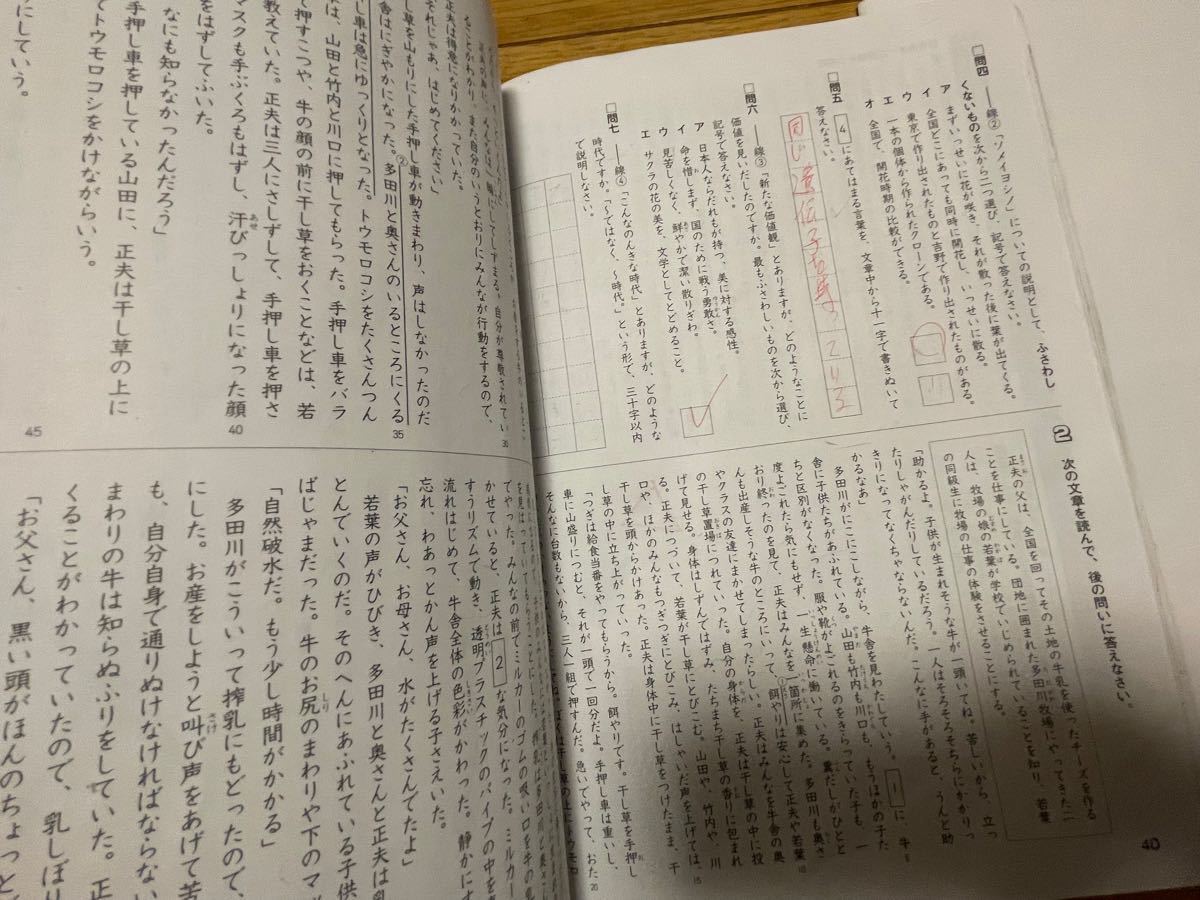 □問四 ――線②「ソメイヨシノ」についての説明として、ふさわし
くないものを次から二つ選び、記号で答えなさい。
ア まずいっせいに花が咲き、それが散った後に葉が出てくる。
イ 全国どこにあっても同時に開花し、いっせいに散る。
ウ 東京で作り出されたものと吉野で作り出されたものがある。
エ 一本の個体から作られたクローンである。
オ 全国で、開花時期の比較ができる。
□問五 4 にあてはまる言葉を、文章中から十一字で書きぬいて
答えなさい。
同じ遺伝子
□問六 ――線③「新たな価値観」とありますが、どのようなことに
価値を見いだしたのですか。最もふさわしいものを次から選び、
記号で答えなさい。
ア 日本人ならだれもが持つ、美に対する感性。
イ 命を惜しまず、国のために戦う勇敢さ。
ウ 見苦しくなく、鮮やかで潔い散りぎわ。
エ サクラの花の美を、文学としてとどめること。
□問七 ――線④「こんなのんきな時代」とありますが、どのような
時代ですか。「〜ではなく、〜時代。」という形で、三十字以内
で説明しなさい。
2 次の文章を読んで、後の問いに答えなさい。
正夫の父は、全国を回ってその土地の牛乳を使ったチーズを作る
ことを仕事にしている。団地に囲まれた多田川牧場にやってきた二
人は、牧場の娘の若葉が学校でいじめられていることを知り、若葉
の同級生に牧場の仕事の体験をさせることにする。
「助かるよ。子供が生まれそうな牛が一頭いてね。苦しいから、立っ
たりしゃがんだりしているだろう。一人はそろそろそちらにかかりっ
きりになってなくちゃならないんだ。こんなに手があると、うんと助
かるなあ」
多田川がにこにこしながら、牛舎を見わたしている。 1 に、牛
舎に子供たちがあふれている。山田も竹内も川口も、もうほかの子た
ちと区別がなくなった。服や靴がよごれるのをきらっていた子も、一
度よごれたら気にもせず、一生懸命に働いている。糞だしがひとと
おり終ったのを見て、正夫はみんなを一箇所に集めた。多田川も奥さ
んも出産しそうな牛のところにいって、餌やりは安心して正夫や若葉
やクラスの友達にまかせてしまったらしい。正夫はみんなを牛舎の奥
の干し草置場につれていった。自分の身体を、正夫は干し草の中に投
げて見せる。身体はしずんではずみ、たちまち干し草の香りに包まれ
る。正夫につづいて、若葉が干し草にとびこむ。山田や、竹内や、川
口や、ほかのみんなもつぎつぎにとびこみ、はしゃいだ声を上げては、
干し草を頭からかけあった。正夫は身体中に干し草をつけたまま、干
し草の中に立ち上がっていった。
「つぎは給食当番をやってもらうから。餌やりです。干し草を手押し
車に山盛りにつむと、それが一頭で一回分だよ。手押し車は重いし、
そんなに台数もないから、三人一組で押すんだ。急いでやって、おた
15
20
40
ることがわかり、また自分のいうとおりにみんなが行動をするので、
正夫は得意になりかかっていた。
「それじゃあ、はじめてください」
干し草を山もりにした手押し車が動きまわり、声はしなかったのだ
が牛舎はにぎやかになった。多田川と奥さんのいるところにくる
35
は、山田と竹内と川口に押してもらった。手押し車をバラ
で押すこつや、牛の顔の前に干し草をおくことなどは、若
教えていた。正夫は三人にさしずして、手押し車を押さ
40
マスクも手ぶくろもはずし、汗びっしょりになった顔
をはずしてふいた。
なにも知らなかったんだろう」
手押し車を押している山田に、正夫は干し草の上に
てトウモロコシをかけながらいう。
45
にしていう。
てやった。みんなの前でミルカーのゴムの吸い口を牛の乳
かせていると、正夫は 2 な気分になった。ミルカー
すうリズムで動き、透明プラスチックのパイプの中を
流れはじめて、牛舎全体の色彩がかわった。静かにす
忘れ、わあっとかん声を上げる子さえいた。
「お父さん、お母さん、水がたくさんでたよ」
若葉の声がひびき、多田川と奥さんと正夫は乳
とんでいくのだ。そのへんにあふれている子供
ばじゃまだった。牛のお尻のまわりや下のマ
「自然破水だ。もう少し時間がかかる」
多田川がこういって搾乳にもどったので、
にした。お産をしようと叫び声をあげて苦
も、自分自身で通りぬけなければならない
まわりの牛は知らぬふりをしていた。正
くることがわかっていたので、乳しぼり
「お父さん、黒い頭がほんのちょっと